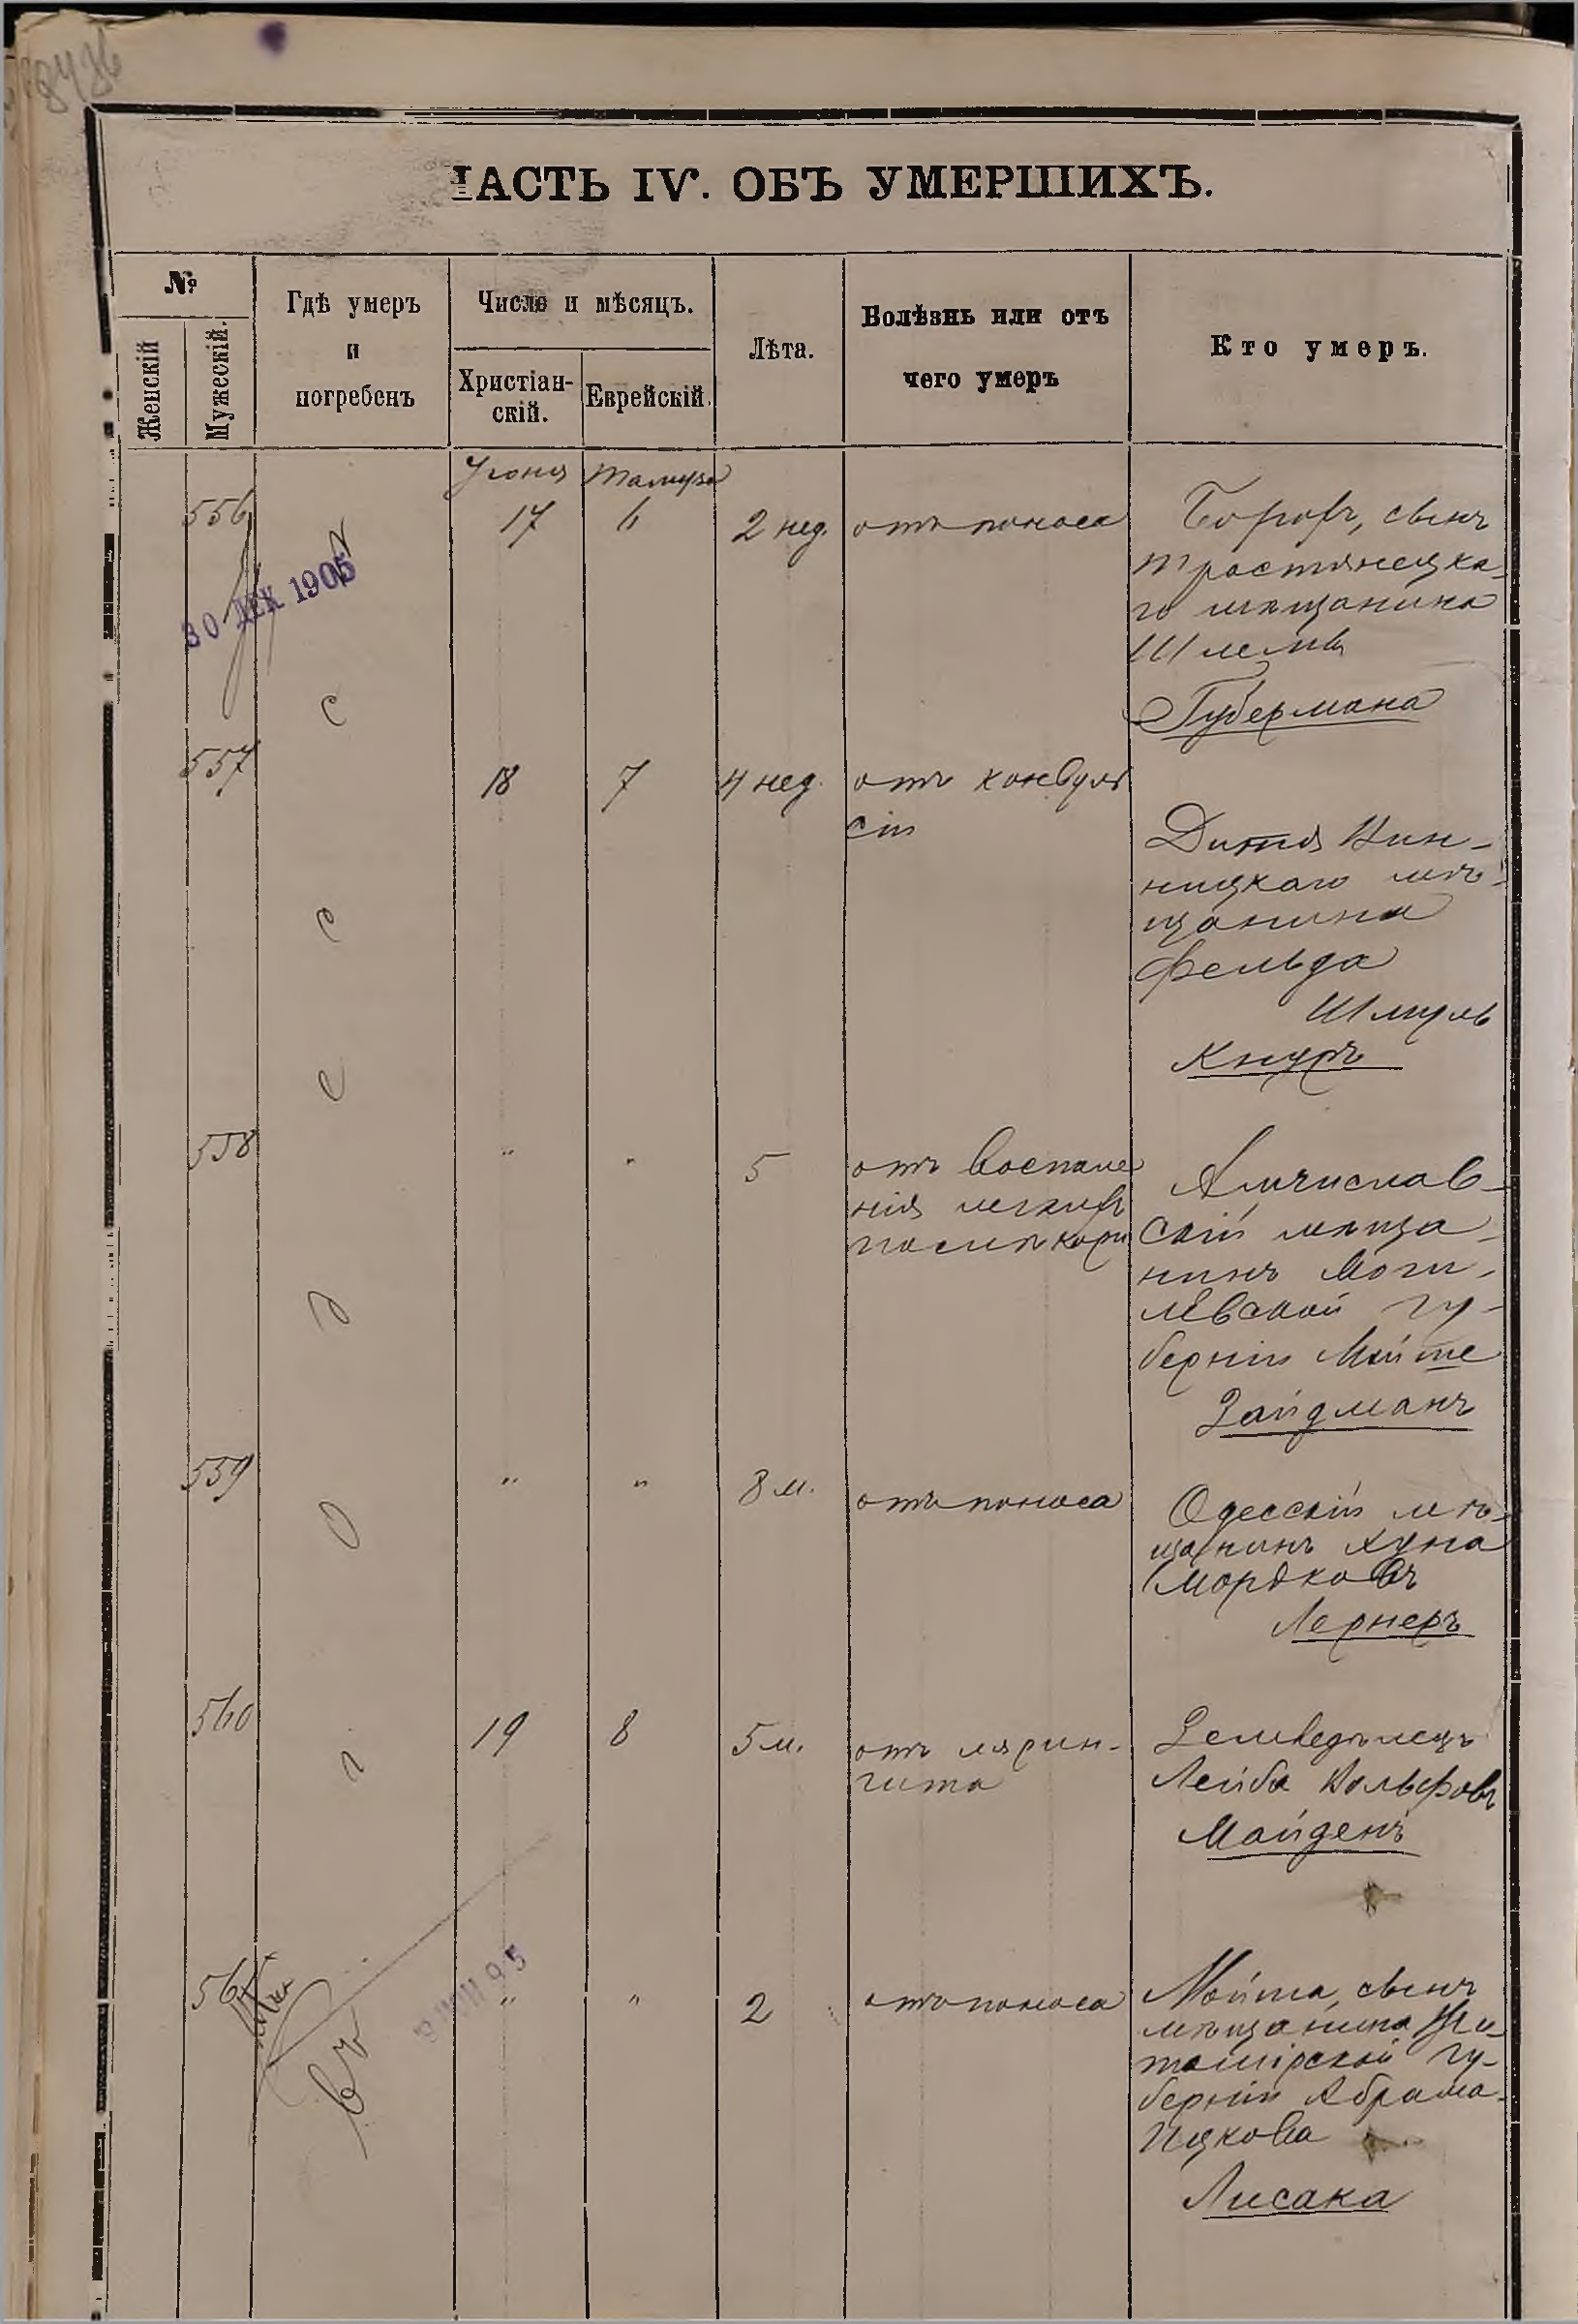 8486
ЧАСТЬ IV. ОБЪ УМЕРШИХЪ.
№
Женскій
Мужескій.
Гдѣ умеръ
и
погребенъ
Число и мѣсяцъ.
Христіан-
скій.
Еврейскій.
Лѣта.
Болѣзнь или отъ
чего умеръ
Кто умеръ.
Іюня Тамуза
556 17 6 2 нед. отъ поноса
сынъ
Тростянецка-
го мѣщанина
Шлемы
Губермана
30 ДЕК 1905
557 18 7 4 нед. отъ конвуль
сіи
Дитя Вин-
ницкаго мѣ-
щанина
Фельда
Шмуль
Кнуръ
558 " " 5 отъ воспале
нія легкихъ
послѣ кори
Амчислав-
скій мѣща-
нинъ Моги-
лёвской гу-
берніи
Зайдманъ
559 " " 8 м. отъ поноса
Одесскій мѣ-
щанинъ Хуна
Мордковъ
Лернеръ
560 19 8 5 м. отъ лярин-
гита
Земледѣлецъ
Лейба Вольфовъ
Майденъ
561 " " 2 отъ поноса
Мойша, сынъ
мѣщанина Жи-
томірской гу-
берніи Абрама-
Ицкова
Лисака
О д е с с